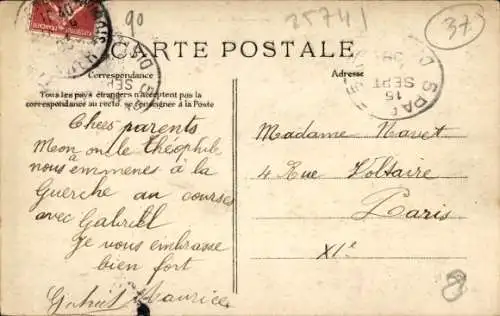 90
25741
37
CARTE POSTALE
Correspondance
Adresse
Tous les pays étrangers n'acceptent pas la
correspondance au recto. se renseigner à la Poste
15
SEPT
Chers parents
Mon oncle théophile
nous à emmenés à la
Guerche au courses
avec Gabriel
Je vous embrasse
bien fort
Maurice
Madame Navet
4 Rue Voltaire
Paris
XIe
8